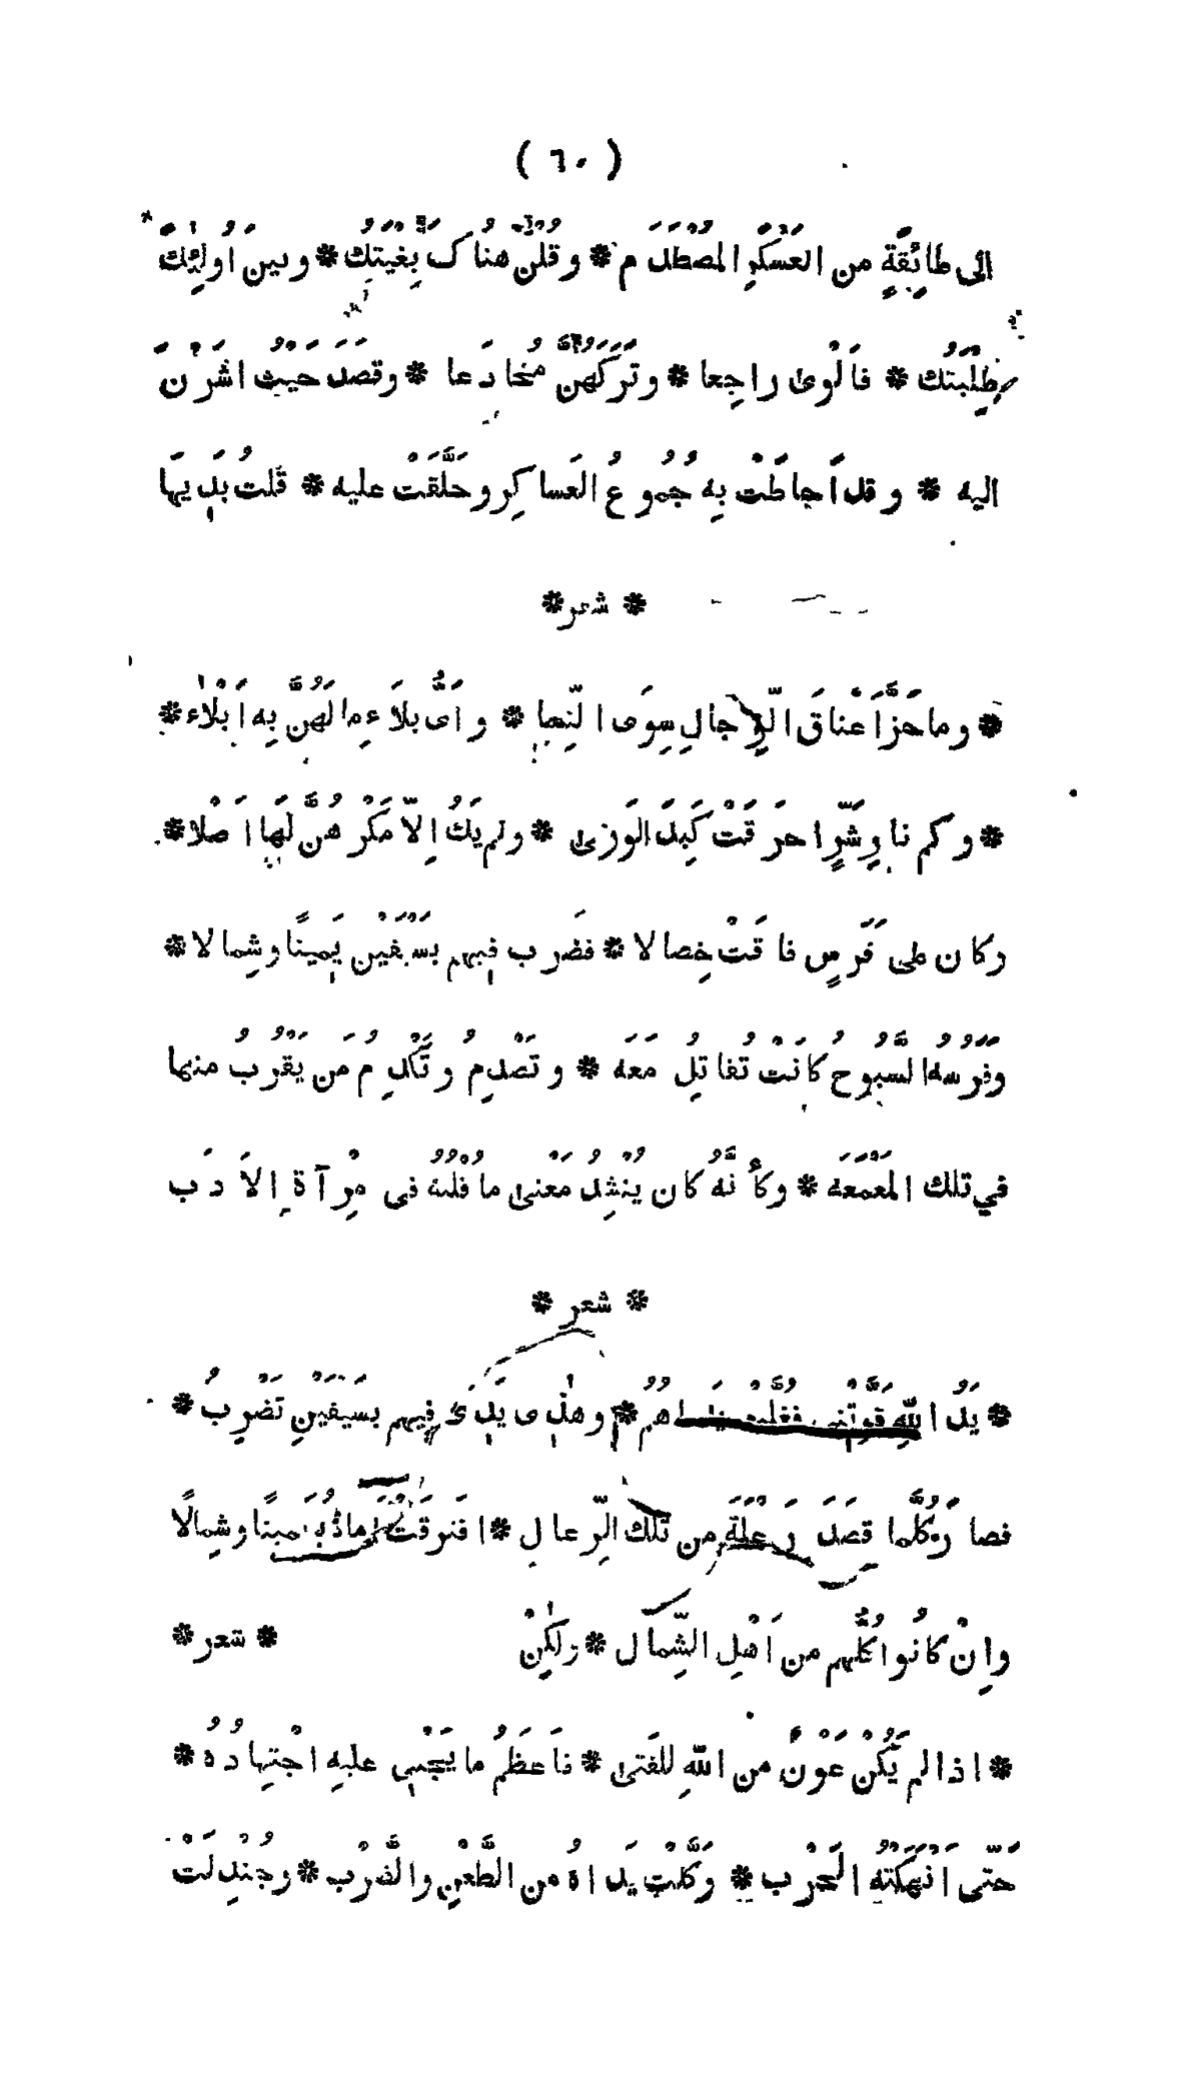 ( ٦٠ )
الى طائِفَةٍ من العَسْكَرِ المُصْطَدَم * وقُلْنَ هُناكَ بُغْيَتُكَ * وبين اُولٰئِكَ
طِلْبَتُكَ * فاَلْوىٰ راجِعا * وتَرَكْنَهُنَّ مُخادَعا * وقَصَدَ حَيْثُ اشَرْنَ
اليه * وقد اَحاطَتْ بِهِ جُمُوعُ العَساكِر وحَلَّقَتْ عليه * قُلتُ بَدِيهَا
* شعر *
* وما حَزَّ اَعْناقَ الرِّجالِ سِوَى النِّسا * وَاَىُّ بَلاَءٍ ما لَهُنَّ بِهِ اَبْلاٰء *
* وكم نارِ شَرٍّ احرَقَتْ كَبِدَ الوَرىٰ * ولم يَكُ اِلاّ مَكْرُهُنَّ لَها اَصْلا *
وكان على فَرَسٍ فاقَتْ خِصالا * فضَرب فيهم بسَيْفَيْن يَمينًا وشِمالا *
وفرسُهُ السَّبُوحُ كانَتْ تُقاتِلُ مَعَهُ * وتَصْدِمُ وتَكْدِمُ مَن يَقْرُبُ منها
في تلك المَعْمَعَه * وكأنَّهُ كان يُنْشِدُ مَعْنىٰ ما قُلْتُهُ فى مِرْآةِ الاَدَب
* شعر *
* يَدُ اللهِ قَوَّتْنى فَفَلَّتْ هُمُ * وهٰذِى يَدِى فِيهم بسَيْفَيْنِ تَضْرِبُ *
فصارَ كُلَّما قَصَدَ رَعْلَةً من تلك الرِّعالِ * افتَرَقَتْ يمينًا وشِمالًا
واِنْ كانُوا كُلُّهم من اَهْلِ الشِّمال * ولٰكِنْ * شعر *
* اذا لم يَكُنْ عَوْنٌ من اللهِ للفَتى * فاَعظَمُ ما يَجْنِى عليهِ اجْتِهادُهُ *
حَتّى اَنْهَكَتْهُ الحَرْب * وَكَلَّتْ يَداهُ من الطَّعْنِ والضَّرْب * وجُنْدِلَتْ